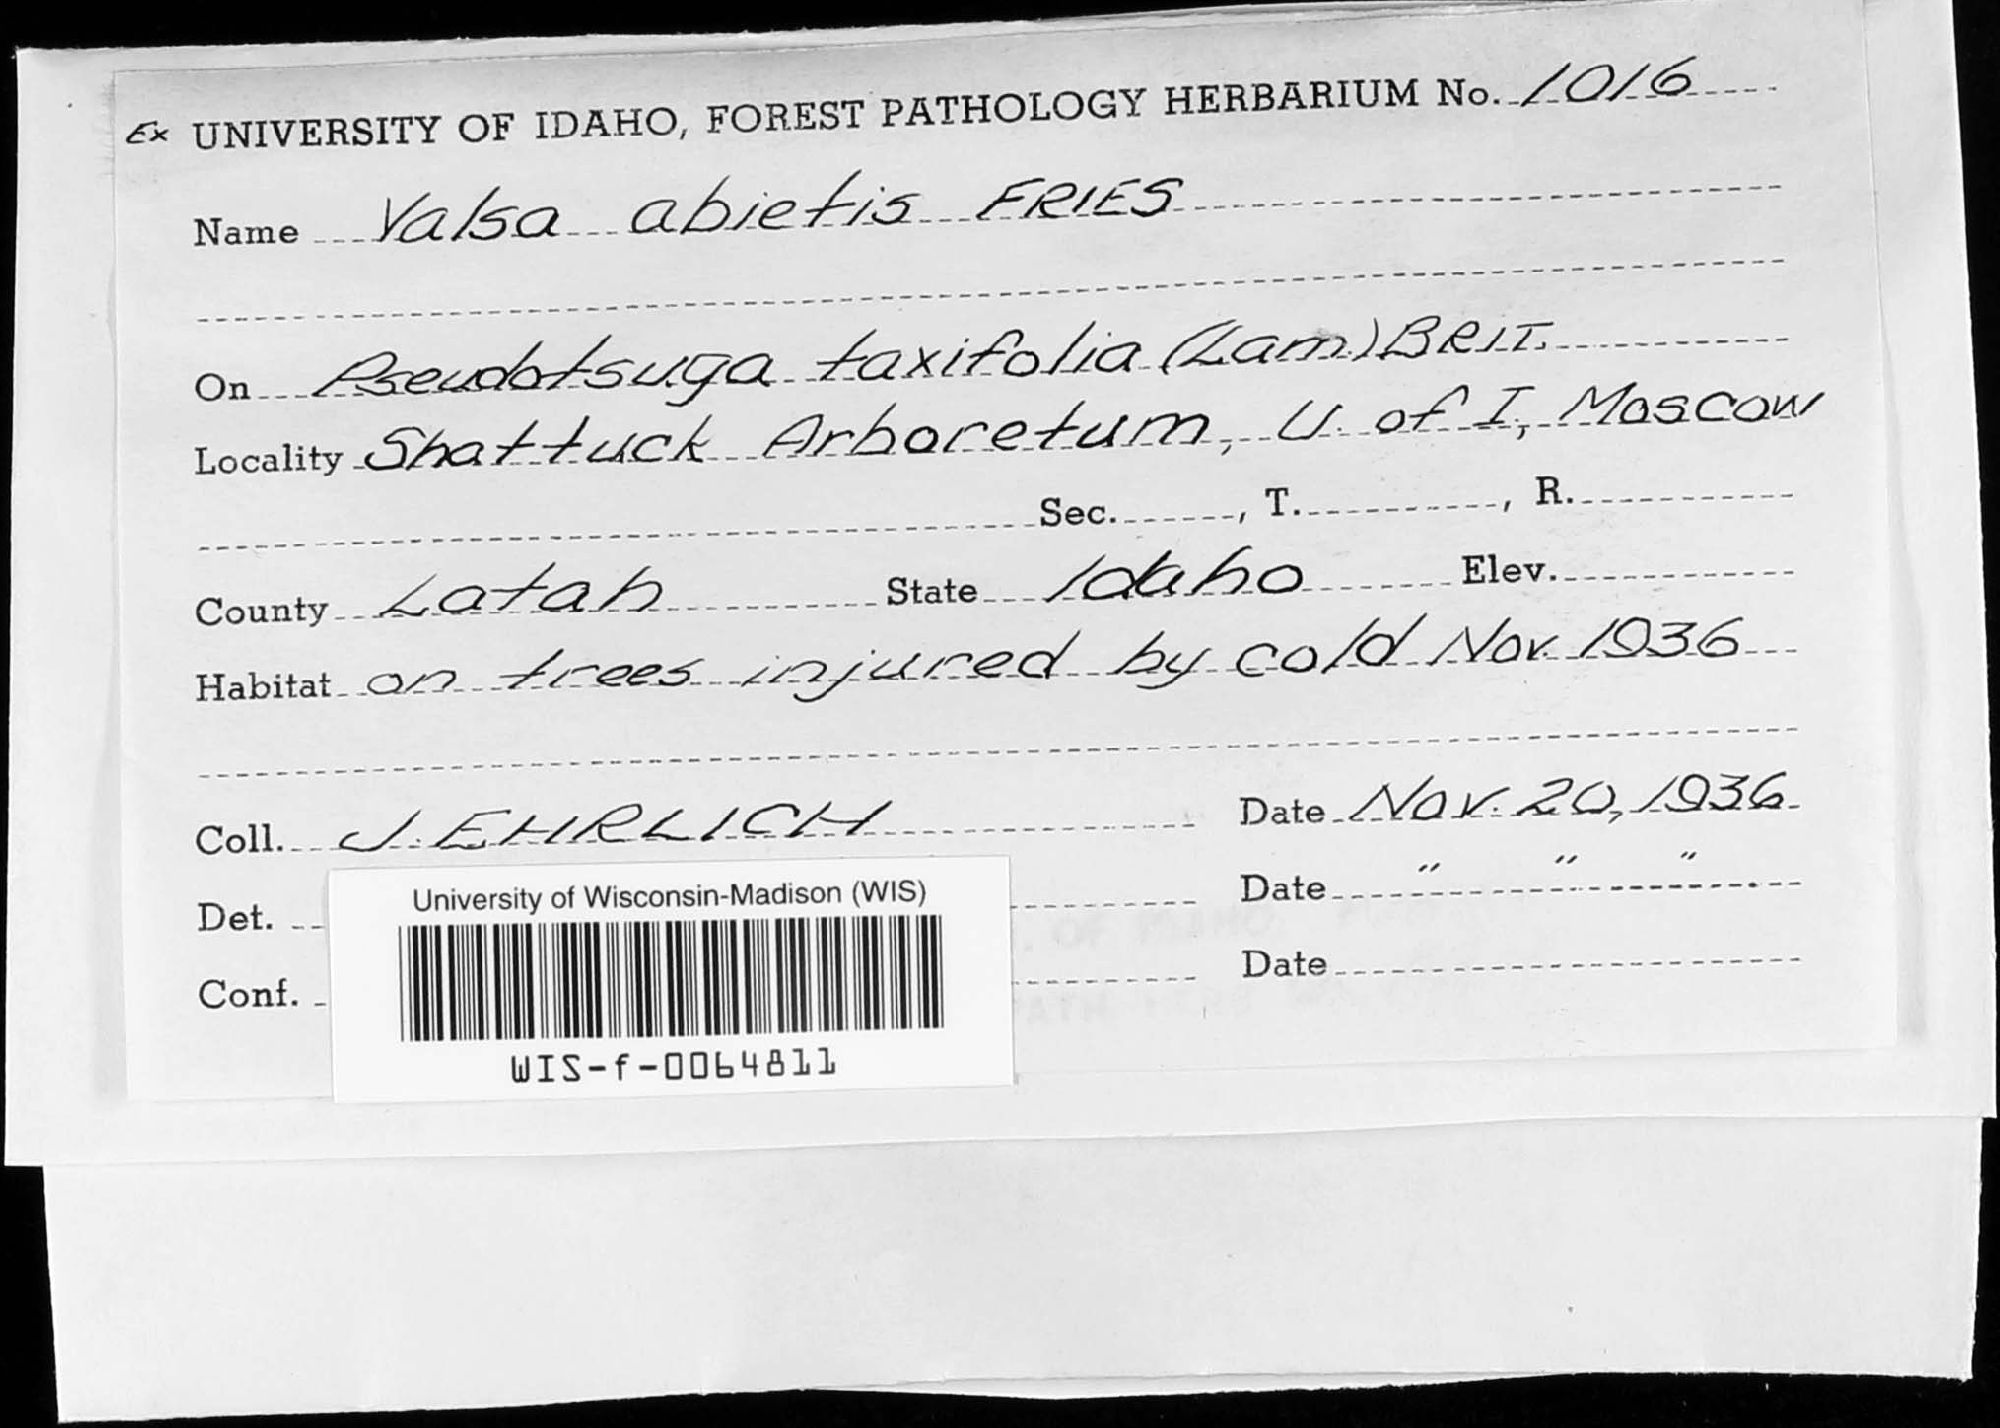 Ex UNIVERSITY OF IDAHO, FOREST PATHOLOGY HERBARIUM No. 1016
Name Valsa abietis FRIES
On Pseudotsuga taxifolia (Lam.) BRIT.
Locality Shattuck Arboretum, U. of I, Moscow
Sec. , T. , R.
County Latah State Idaho Elev.
Habitat on trees injured by cold Nov. 1936
Coll. J. EHRLICH Date Nov. 20, 1936
Det. Date " " "
Conf. Date
University of Wisconsin-Madison (WIS)
WIS-f-0064811